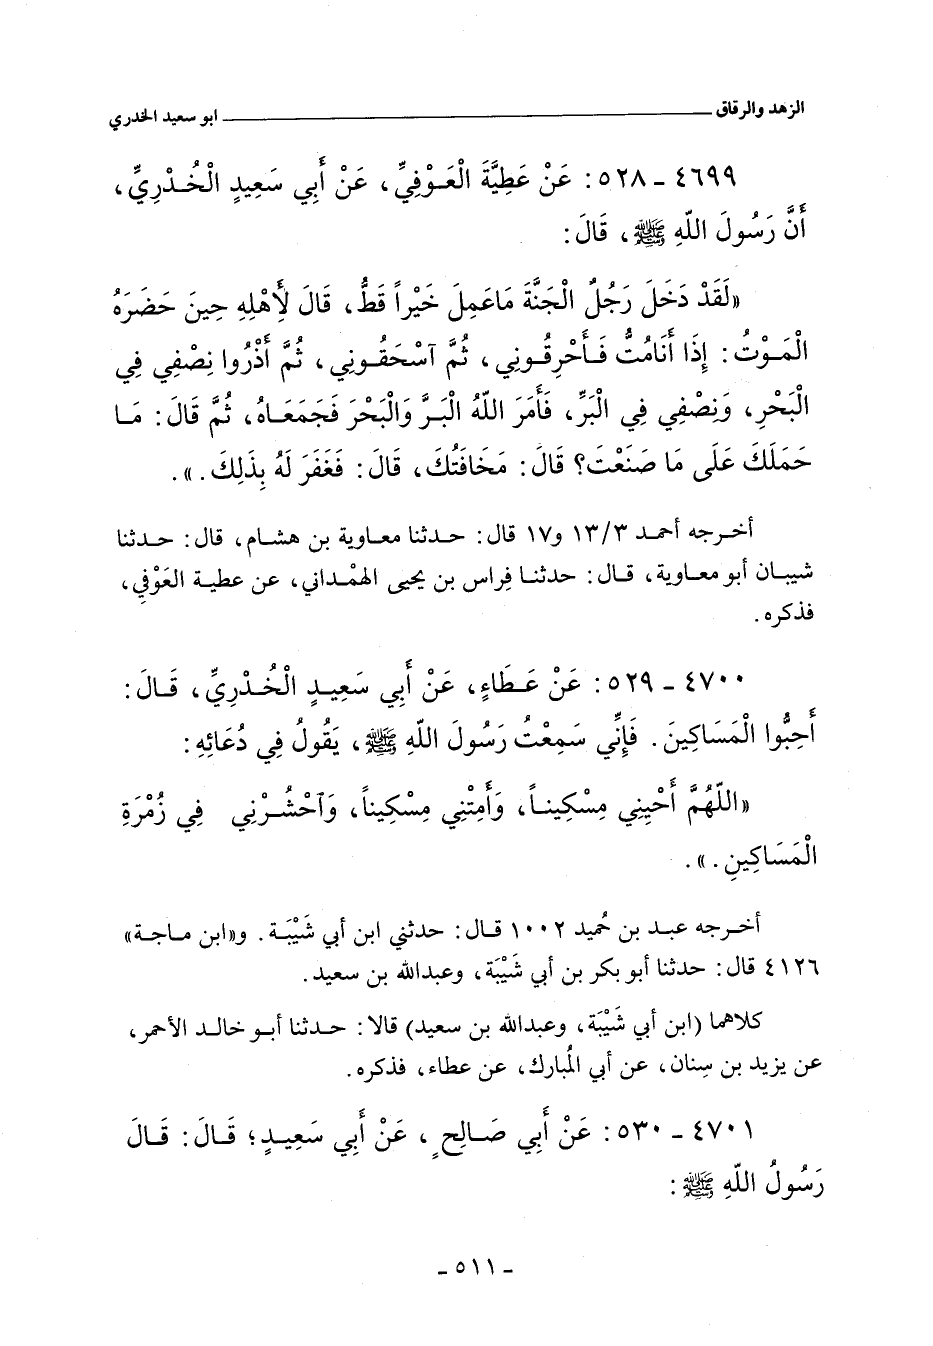 الزهد والرقاق ــــــــــــــــــــ ابو سعيد الخدري
٤٦٩٩ - ٥٢٨: عَنْ عَطِيَّةَ الْعَوْفِيِّ، عَنْ أَبِي سَعِيدٍ الْخُدْرِيِّ،
أَنَّ رَسُولَ اللّهِ ﷺ، قَالَ:
«لَقَدْ دَخَلَ رَجُلٌ الْجَنَّةَ مَاعَمِلَ خَيْراً قَطُّ، قَالَ لِأَهْلِهِ حِينَ حَضَرَهُ
الْمَوْتُ: إِذَا أَنَامُتُّ فَأَحْرِقُونِي، ثُمَّ آسْحَقُونِي، ثُمَّ أَذْرُوا نِصْفِي فِي
الْبَحْرِ، وَنِصْفِي فِي الْبَرِّ، فَأَمَرَ اللّهُ الْبَرَّ وَالْبَحْرَ فَجَمَعَاهُ، ثُمَّ قَالَ: مَا
حَمَلَكَ عَلَى مَا صَنَعْتَ؟ قَالَ: مَخَافَتُكَ، قَالَ: فَغَفَرَ لَهُ بِذَلِكَ.».
أخرجه أحمد ١٣/٣ و١٧ قال: حدثنا معاوية بن هشام، قال: حدثنا
شيبان أبو معاوية، قال: حدثنا فِراس بن يحيى الهمْداني، عن عطية العَوْفي،
فذكره.
٤٧٠٠ - ٥٢٩: عَنْ عَطَاءٍ، عَنْ أَبِي سَعِيدٍ الْخُدْرِيِّ، قَالَ:
أَحِبُّوا الْمَسَاكِينَ. فَإِنِّي سَمِعْتُ رَسُولَ اللّهِ ﷺ، يَقُولُ فِي دُعَائِهِ:
«اللّهُمَّ أَحْيِنِي مِسْكِيناً، وَأَمِتْنِي مِسْكِيناً، وَآحْشُرْنِي فِي زُمْرَةِ
الْمَسَاكِينِ.».
أخرجه عبد بن حُميد ١٠٠٢ قال: حدثني ابن أبي شَيْبَة. و«ابن ماجة»
٤١٢٦ قال: حدثنا أبو بكر بن أبي شَيْبَة، وعبدالله بن سعيد.
كلاهما (ابن أبي شَيْبَة، وعبدالله بن سعيد) قالا: حدثنا أبو خالد الأحمر،
عن يزيد بن سِنان، عن أبي المُبارك، عن عطاء، فذكره.
٤٧٠١ - ٥٣٠: عَنْ أَبِي صَالِحٍ، عَنْ أَبِي سَعِيدٍ؛ قَالَ: قَالَ
رَسُولُ اللّهِ ﷺ:
- ٥١١ -